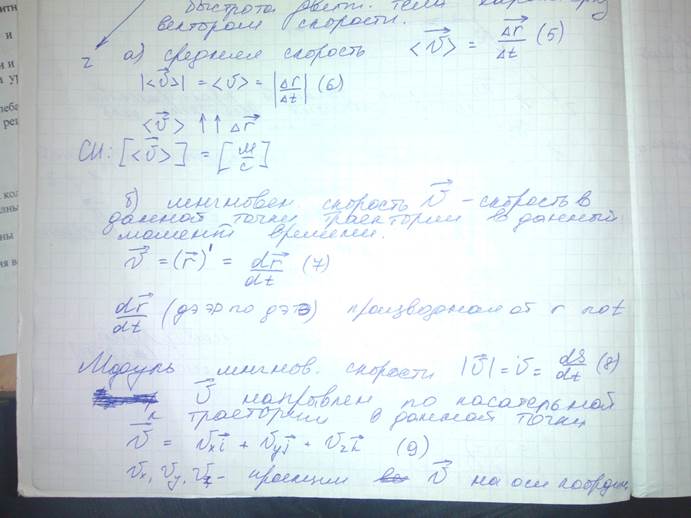 быстрота движ. тела
вектором скорости.
z а) средняя скорость <v⃗> = Δr⃗/Δt (5)
|<v⃗>| = <v> = |Δr⃗/Δt| (6)
<v⃗> ↑↑ Δr⃗
СИ: [<v⃗>] = [м/с]
б) мнгновен скорость v⃗ – скорость в
данной точки траектории в данный
момент времени.
v⃗ = (r⃗)' = dr⃗/dt (7)
dr⃗/dt (дэ эр по дэ тэ) производная от r по t
Модуль мнгнов. скорости |v⃗| = v = dS/dt (8)
v⃗ направлен по касательной
к траетории в данной точки
v⃗ = vₓi⃗ + vᵧj⃗ + v_zk⃗ (9)
vₓ, vᵧ, v_z – проекции v⃗ на оси координ.